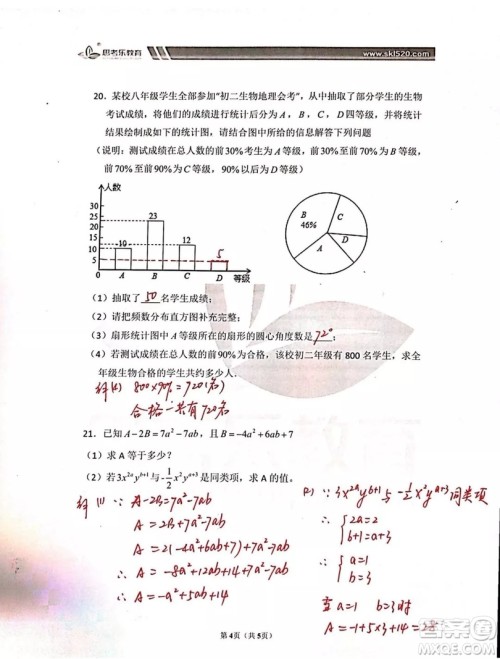 思考乐教育
www.skl520.com
20. 某校八年级学生全部参加“初二生物地理会考”，从中抽取了部分学生的生物
考试成绩，将他们的成绩进行统计后分为 A，B，C，D 四等级，并将统计
结果绘制成如下的统计图，请结合图中所给的信息解答下列问题
(说明：测试成绩在总人数的前30%考生为 A 等级，前30%至前70%为 B 等级，
前70%至前90%为 C 等级，90%以后为 D 等级)
人数
30
25
20
15
10
5
0
10
23
12
5
A B C D 等级
B
46%
C
D
A
(1) 抽取了 50 名学生成绩；
(2) 请把频数分布直方图补充完整；
(3) 扇形统计图中 A 等级所在的扇形的圆心角度数是 72°；
(4) 若测试成绩在总人数的前90%为合格，该校初二年级有 800 名学生，求全
年级生物合格的学生共约多少人．
解(4) 800×90%=720(名)
合格一共有720名
21. 已知 A-2B=7a²-7ab，且 B=-4a²+6ab+7
(1) 求 A 等于多少？
(2) 若 3x²ᵃyᵇ⁺¹ 与 -1/2x²yᵃ⁺³ 是同类项，求 A 的值。
解 (1) ∵ A-2B=7a²-7ab
A=2B+7a²-7ab
A=2(-4a²+6ab+7)+7a²-7ab
∴ A=-8a²+12ab+14+7a²-7ab
∴ A=-a²+5ab+14
(2) ∵ 3x²ᵃyᵇ⁺¹与-1/2x²yᵃ⁺³同类项
∴ {2a=2
b+1=a+3
∴ {a=1
b=3
当a=1 b=3时
A=-1+5×3+14=28
第4页（共5页）